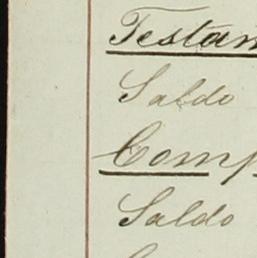 Testam
Saldo
Comp
Saldo